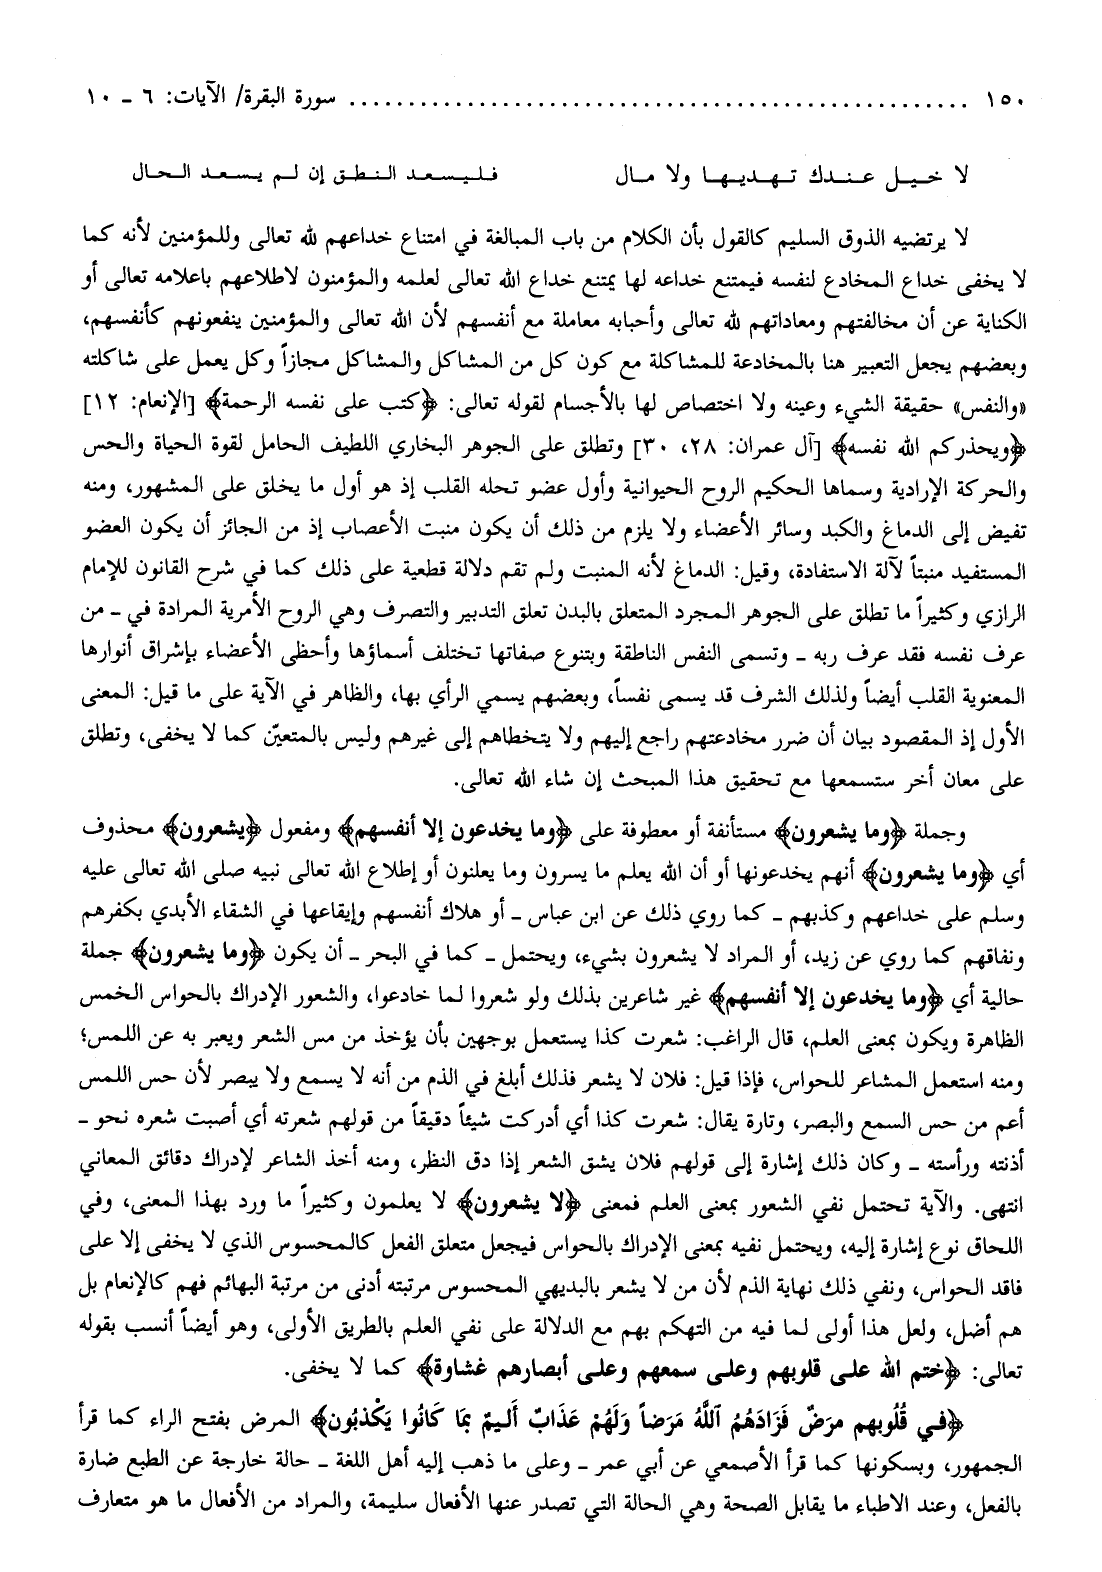 ١٥٠ ..................................................... سورة البقرة/ الآيات: ٦ ـ ١٠
لا خيل عندك تهديها ولا مال فليسعد النطق إن لم يسعد الحال
لا يرتضيه الذوق السليم كالقول بأن الكلام من باب المبالغة في امتناع خداعهم لله تعالى وللمؤمنين لأنه كما
لا يخفى خداع المخادع لنفسه فيمتنع خداعه لها يمتنع خداع الله تعالى لعلمه والمؤمنون لاطلاعهم باعلامه تعالى أو
الكناية عن أن مخالفتهم ومعاداتهم لله تعالى وأحبابه معاملة مع أنفسهم لأن الله تعالى والمؤمنين ينفعونهم كأنفسهم،
وبعضهم يجعل التعبير هنا بالمخادعة للمشاكلة مع كون كل من المشاكل والمشاكل مجازاً وكل يعمل على شاكلته
«والنفس» حقيقة الشيء وعينه ولا اختصاص لها بالأجسام لقوله تعالى: ﴿كتب على نفسه الرحمة﴾ [الإنعام: ١٢]
﴿ويحذركم الله نفسه﴾ [آل عمران: ٢٨، ٣٠] وتطلق على الجوهر البخاري اللطيف الحامل لقوة الحياة والحس
والحركة الإرادية وسماها الحكيم الروح الحيوانية وأول عضو تحله القلب إذ هو أول ما يخلق على المشهور، ومنه
تفيض إلى الدماغ والكبد وسائر الأعضاء ولا يلزم من ذلك أن يكون منبت الأعصاب إذ من الجائز أن يكون العضو
المستفيد منبتاً لآلة الاستفادة، وقيل: الدماغ لأنه المنبت ولم تقم دلالة قطعية على ذلك كما في شرح القانون للإمام
الرازي وكثيراً ما تطلق على الجوهر المجرد المتعلق بالبدن تعلق التدبير والتصرف وهي الروح الأمرية المرادة في ـ من
عرف نفسه فقد عرف ربه ـ وتسمى النفس الناطقة وبتنوع صفاتها تختلف أسماؤها وأحظى الأعضاء بإشراق أنوارها
المعنوية القلب أيضاً ولذلك الشرف قد يسمى نفساً، وبعضهم يسمي الرأي بها، والظاهر في الآية على ما قيل: المعنى
الأول إذ المقصود بيان أن ضرر مخادعتهم راجع إليهم ولا يتخطاهم إلى غيرهم وليس بالمتعيّن كما لا يخفى، وتطلق
على معان أخر ستسمعها مع تحقيق هذا المبحث إن شاء الله تعالى.
وجملة ﴿وما يشعرون﴾ مستأنفة أو معطوفة على ﴿وما يخدعون إلا أنفسهم﴾ ومفعول ﴿يشعرون﴾ محذوف
أي ﴿وما يشعرون﴾ أنهم يخدعونها أو أن الله يعلم ما يسرون وما يعلنون أو إطلاع الله تعالى نبيه صلى الله تعالى عليه
وسلم على خداعهم وكذبهم ـ كما روي ذلك عن ابن عباس ـ أو هلاك أنفسهم وإيقاعها في الشقاء الأبدي بكفرهم
ونفاقهم كما روي عن زيد، أو المراد لا يشعرون بشيء، ويحتمل ـ كما في البحر ـ أن يكون ﴿وما يشعرون﴾ جملة
حالية أي ﴿وما يخدعون إلا أنفسهم﴾ غير شاعرين بذلك ولو شعروا لما خادعوا، والشعور الإدراك بالحواس الخمس
الظاهرة ويكون بمعنى العلم، قال الراغب: شعرت كذا يستعمل بوجهين بأن يؤخذ من مس الشعر ويعبر به عن اللمس؛
ومنه استعمل المشاعر للحواس، فإذا قيل: فلان لا يشعر فذلك أبلغ في الذم من أنه لا يسمع ولا يبصر لأن حس اللمس
أعم من حس السمع والبصر، وتارة يقال: شعرت كذا أي أدركت شيئاً دقيقاً من قولهم شعرته أي أصبت شعره نحو ـ
أذنته ورأسته ـ وكان ذلك إشارة إلى قولهم فلان يشق الشعر إذا دق النظر، ومنه أخذ الشاعر لإدراك دقائق المعاني
انتهى. والآية تحتمل نفي الشعور بمعنى العلم فمعنى ﴿لا يشعرون﴾ لا يعلمون وكثيراً ما ورد بهذا المعنى، وفي
اللحاق نوع إشارة إليه، ويحتمل نفيه بمعنى الإدراك بالحواس فيجعل متعلق الفعل كالمحسوس الذي لا يخفى إلا على
فاقد الحواس، ونفي ذلك نهاية الذم لأن من لا يشعر بالبديهي المحسوس مرتبته أدنى من مرتبة البهائم فهم كالإنعام بل
هم أضل، ولعل هذا أولى لما فيه من التهكم بهم مع الدلالة على نفي العلم بالطريق الأولى، وهو أيضاً أنسب بقوله
تعالى: ﴿ختم الله على قلوبهم وعلى سمعهم وعلى أبصارهم غشاوة﴾ كما لا يخفى.
﴿في قُلُوبهم مرَضٌ فَزَادَهُمُ ٱللَّهُ مَرَضاً وَلَهُمْ عَذَابٌ أَلـيمٌ بمَا كَانُوا يَكْذبُون﴾ المرض بفتح الراء كما قرأ
الجمهور، وبسكونها كما قرأ الأصمعي عن أبي عمر ـ وعلى ما ذهب إليه أهل اللغة ـ حالة خارجة عن الطبع ضارة
بالفعل، وعند الاطباء ما يقابل الصحة وهي الحالة التي تصدر عنها الأفعال سليمة، والمراد من الأفعال ما هو متعارف